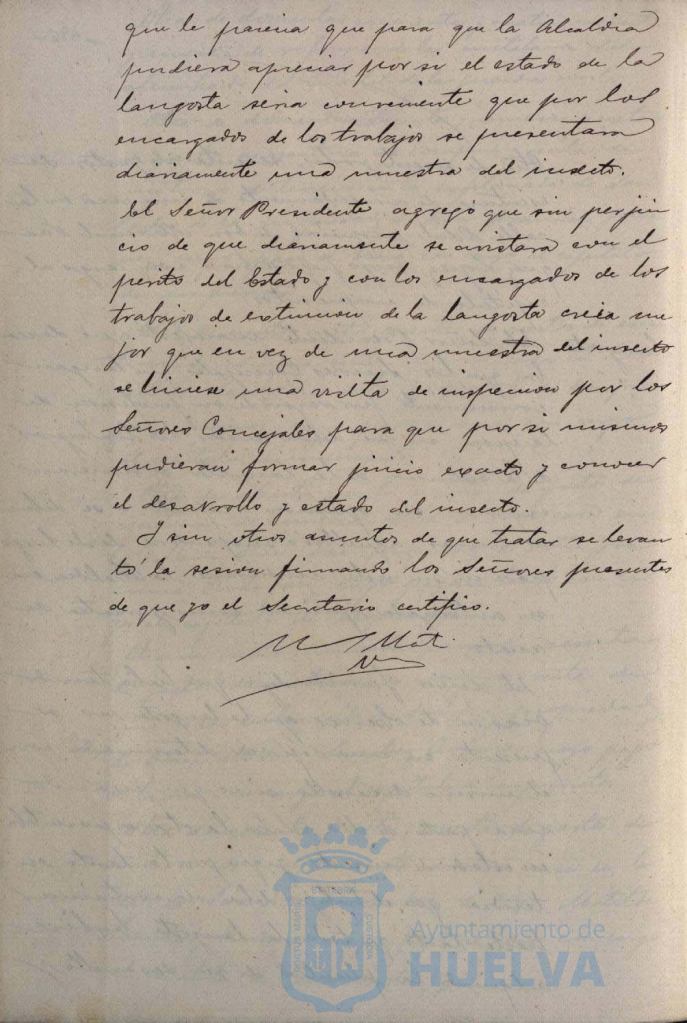 que le parecia que para que la Alcaldia
pudiera apreciar por si el estado de la
langosta seria conveniente que por los
encargados de los trabajos se presentara
diariamente una muestra del insecto.
El Señor Presidente agregó que sin perjui
cio de que diariamente se avistara con el
perito del Estado y con los encargados de los
trabajos de extincion de la langosta creia me
jor que en vez de una muestra del insecto
se hiciese una visita de inspeccion por los
Señores Concejales para que por si mismos
pudieran formar juicio exacto y conocer
el desarrollo y estado del insecto.
Y sin otros asuntos de que tratar se levan
tó la sesion firmando los Señores presentes
de que yo el Secretario certifico.
Ayuntamiento de
HUELVA